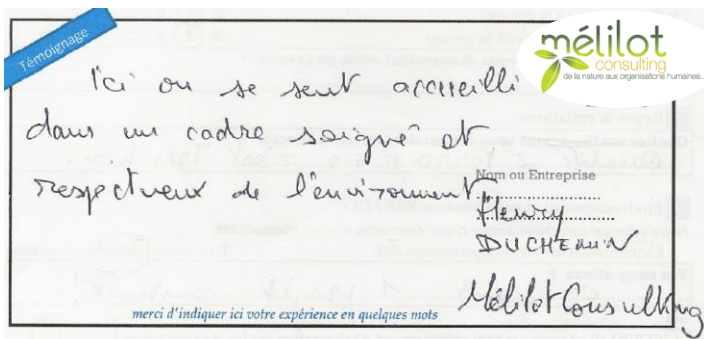 Témoignage
mélilot
consulting
de la nature aux organisations humaines...
Ici on se sent accueilli
dans un cadre soigné et
respectueux de l'environment
Nom ou Entreprise
Fleury
DUCHEMIN
Mélilot Consulting
merci d'indiquer ici votre expérience en quelques mots